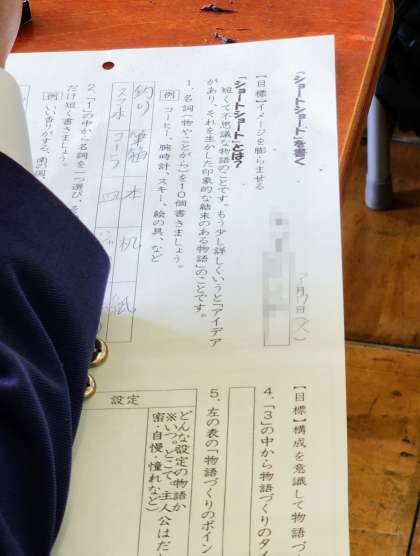 「ショートショート」を書く
【目標】イメージを膨らませる
「ショートショート」とは?
短くて不思議な物語のことです。もう少し詳しくいうと「アイデア
があり、それを生かした印象的な結末のある物語」のことです。
1.名詞(物やことがら)を10個書きましょう。
例 コーヒー、腕時計、スキー、絵の具、など
釣り 筆箱 本 机 紙
スマホ コーラ 四
2.「1」の中から名詞を一つ選び、
だけ短く書きましょう。
例 いい香りがする、
月 日(火)
【目標】構成を意識して物語づ
4.「3」の中から物語づくりのタイ
5.左の表の「物語づくりのポイン
設定
どんな設定の物語か
※いつ。どこで。主人公はだ
密・自慢・憧れなど)